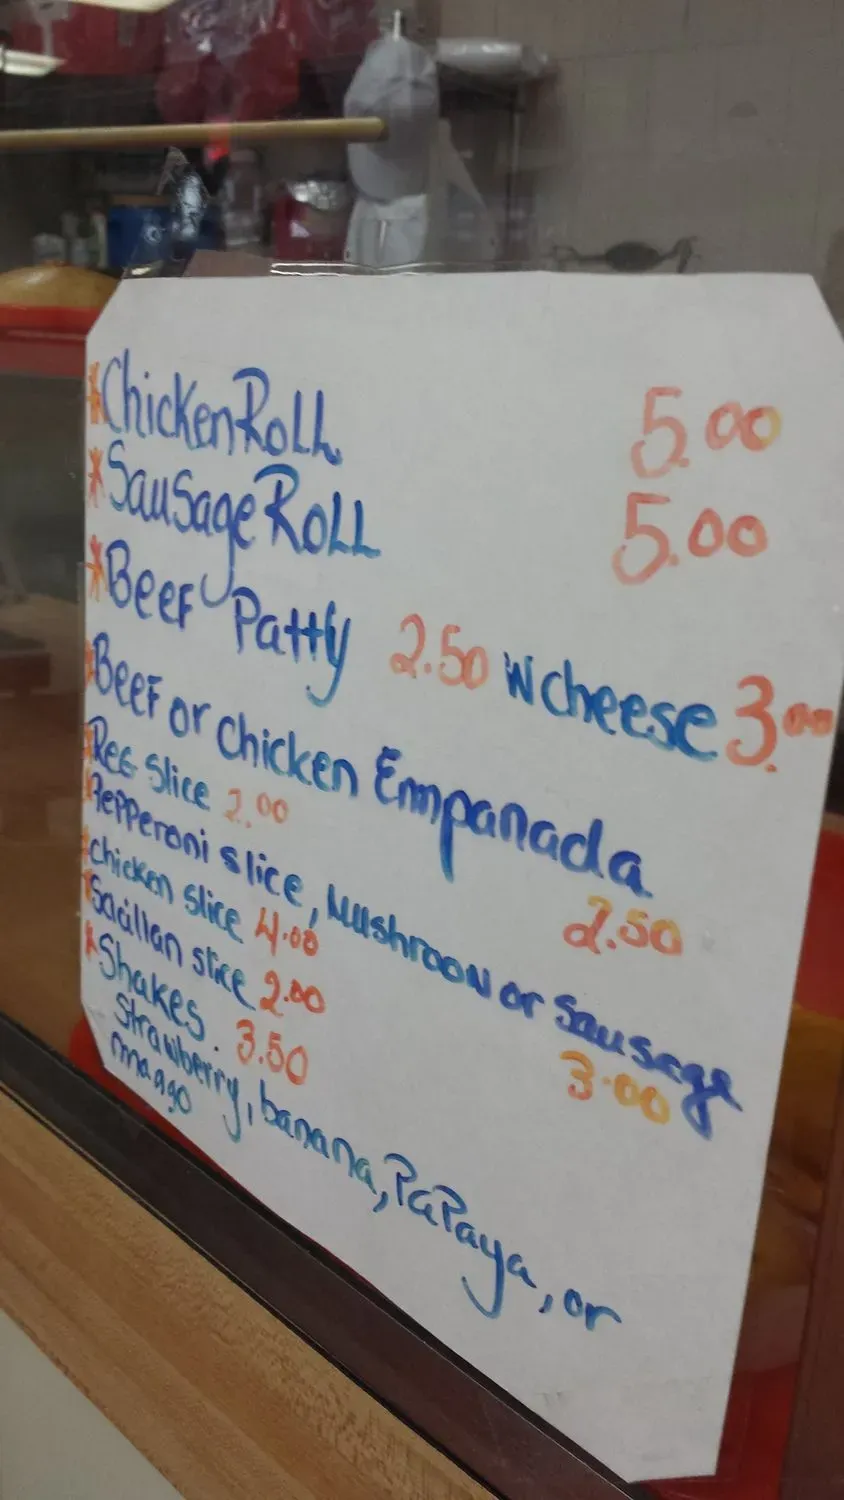 *Chicken Roll 5.00
*Sausage Roll 5.00
*Beef Patty 2.50 W cheese 3.00
*Beef or chicken Empanada 2.50
*Reg Slice 2.00
*Pepperoni slice, Mushroom or Sausage 3.00
*chicken slice 4.00
*Sacillan slice 2.00
*Shakes. 3.50
Strawberry, banana, Papaya, or
mango